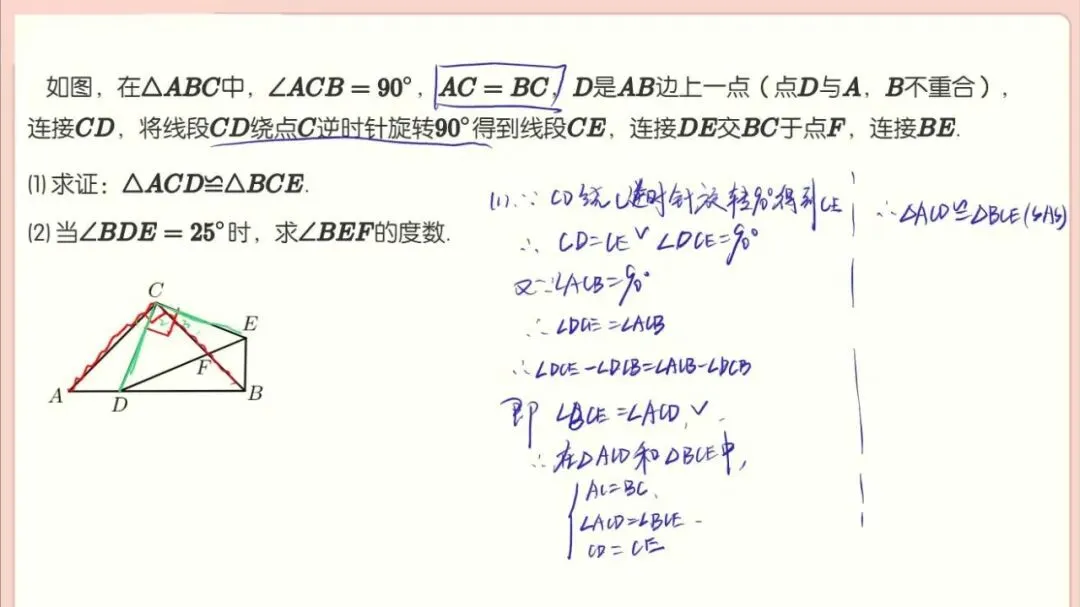 如图，在△ABC中，∠ACB = 90°，AC = BC，D是AB边上一点（点D与A，B不重合），
连接CD，将线段CD绕点C逆时针旋转90°得到线段CE，连接DE交BC于点F，连接BE.
(1) 求证：△ACD≌△BCE.
(2) 当∠BDE = 25°时，求∠BEF的度数.
C
E
F
A
D
B
(1) ∵ CD绕C逆时针旋转90°得到CE
∴ CD=CE ∠DCE=90°
又∵∠ACB=90°
∴ ∠DCE=∠ACB
∴ ∠DCE-∠DCB=∠ACB-∠DCB
即 ∠BCE=∠ACD,
∴ 在△ACD和△BCE中,
AC=BC
∠ACD=∠BCE
CD=CE
∴ △ACD≌△BCE(SAS)